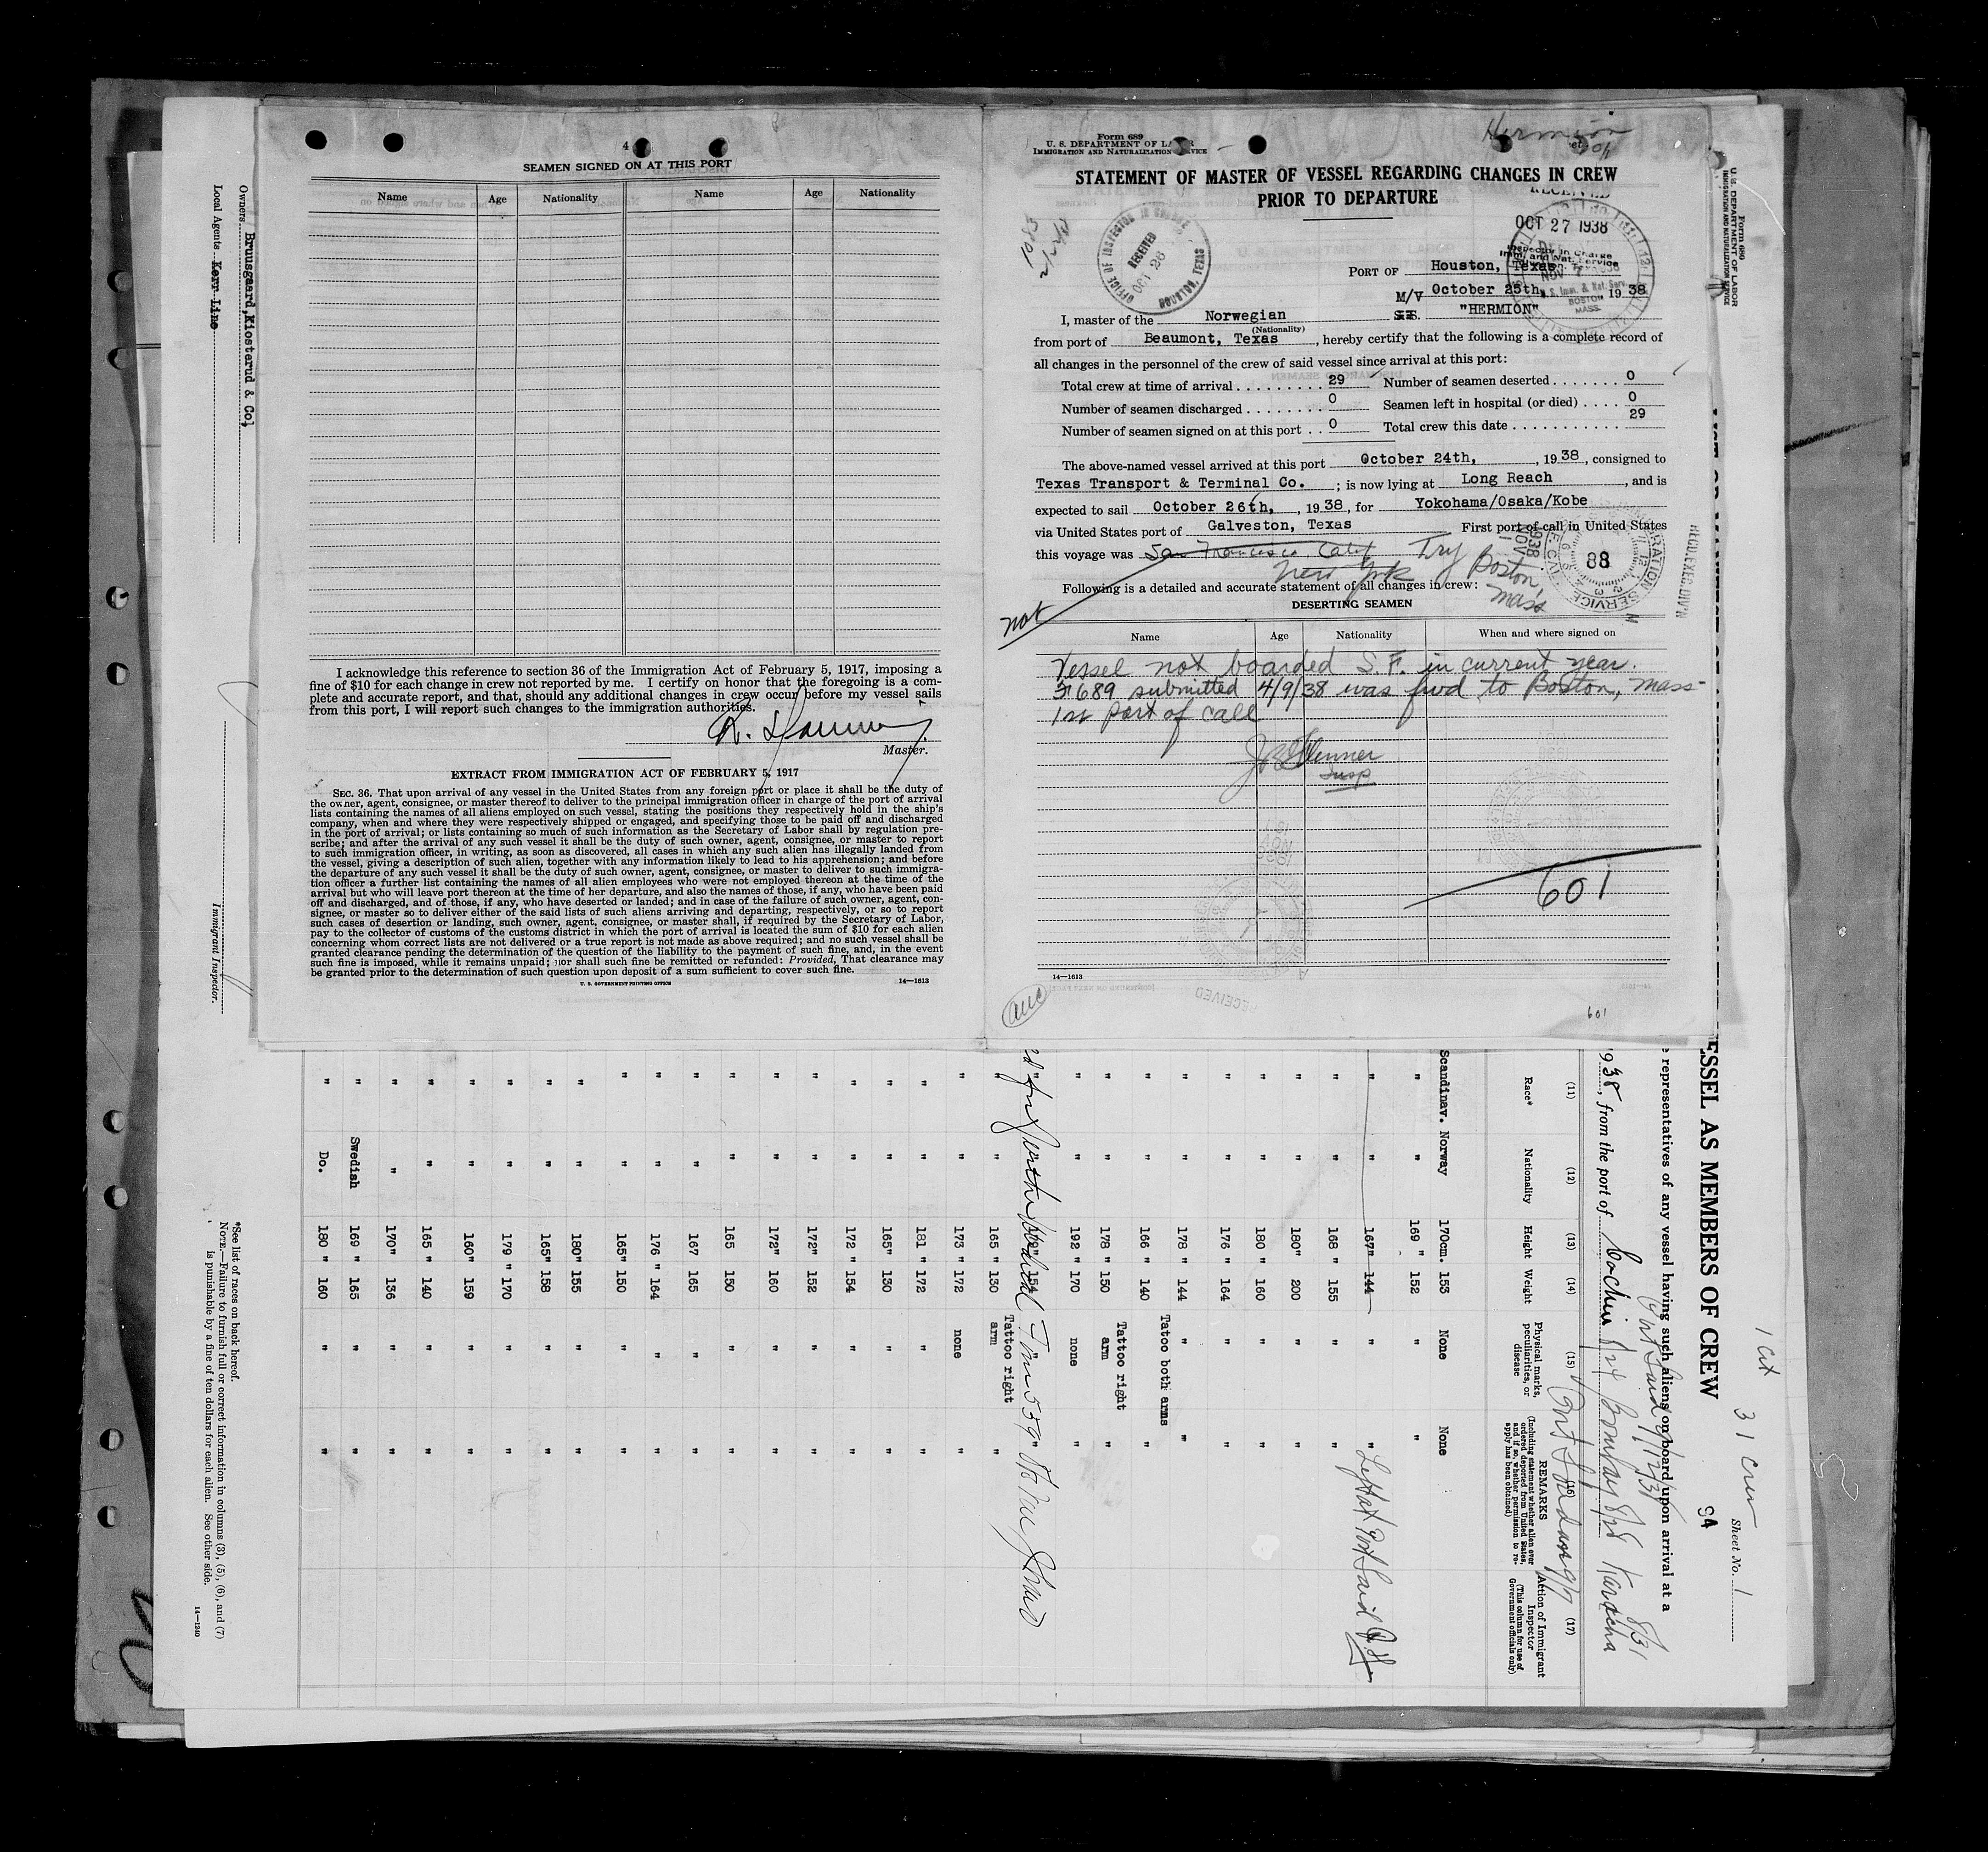 4
SEAMEN SIGNED ON AT THIS PORT
Name Age Nationality Name Age Nationality
I acknowledge this reference to section 36 of the Immigration Act of February 5, 1917, imposing a
fine of $10 for each change in crew not reported by me. I certify on honor that the foregoing is a com-
plete and accurate report, and that, should any additional changes in crew occur before my vessel sails
from this port, I will report such changes to the immigration authorities.
Master.
EXTRACT FROM IMMIGRATION ACT OF FEBRUARY 5, 1917
SEC. 36. That upon arrival of any vessel in the United States from any foreign port or place it shall be the duty of
the owner, agent, consignee, or master thereof to deliver to the principal immigration officer in charge of the port of arrival
lists containing the names of all aliens employed on such vessel, stating the positions they respectively hold in the ship's
company, when and where they were respectively shipped or engaged, and specifying those to be paid off and discharged
in the port of arrival; or lists containing so much of such information as the Secretary of Labor shall by regulation pre-
scribe; and after the arrival of any such vessel it shall be the duty of such owner, agent, consignee, or master to report
to such immigration officer, in writing, as soon as discovered, all cases in which any such alien has illegally landed from
the vessel, giving a description of such alien, together with any information likely to lead to his apprehension; and before
the departure of any such vessel it shall be the duty of such owner, agent, consignee, or master to deliver to such immigra-
tion officer a further list containing the names of all alien employees who were not employed thereon at the time of the
arrival but who will leave port thereon at the time of her departure, and also the names of those, if any, who have been paid
off and discharged, and of those, if any, who have deserted or landed; and in case of the failure of such owner, agent, con-
signee, or master so to deliver either of the said lists of such aliens arriving and departing, respectively, or so to report
such cases of desertion or landing, such owner, agent, consignee, or master shall, if required by the Secretary of Labor,
pay to the collector of customs of the customs district in which the port of arrival is located the sum of $10 for each alien
concerning whom correct lists are not delivered or a true report is not made as above required; and no such vessel shall be
granted clearance pending the determination of the question of the liability to the payment of such fine, and, in the event
such fine is imposed, while it remains unpaid; nor shall such fine be remitted or refunded: Provided, That clearance may
be granted prior to the determination of such question upon deposit of a sum sufficient to cover such fine.
U. S. GOVERNMENT PRINTING OFFICE 14—1613
Form 689
U. S. DEPARTMENT OF LABOR
IMMIGRATION AND NATURALIZATION SERVICE
Hermion
STATEMENT OF MASTER OF VESSEL REGARDING CHANGES IN CREW
PRIOR TO DEPARTURE
RECEIVED
OCT 27 1938
Inspector in Charge
Imm. and Nat. Service
OFFICE OF INSPECTOR IN CHARGE
RECEIVED
OCT 26
HOUSTON, TEXAS
BOSTON
MASS.
PORT OF Houston, Texas
October 25th, 1938
M/V
I, master of the Norwegian S.S. "HERMION"
(Nationality)
from port of Beaumont, Texas, hereby certify that the following is a complete record of
all changes in the personnel of the crew of said vessel since arrival at this port:
Total crew at time of arrival 29 Number of seamen deserted 0
Number of seamen discharged 0 Seamen left in hospital (or died) 0
Number of seamen signed on at this port 0 Total crew this date 29
The above-named vessel arrived at this port October 24th, , 1938, consigned to
Texas Transport & Terminal Co. ; is now lying at Long Reach , and is
expected to sail October 26th, , 1938, for Yokohama/Osaka/Kobe
via United States port of Galveston, Texas First port of call in United States
this voyage was San Francisco, Calif Try Boston,
New York Mass
Following is a detailed and accurate statement of all changes in crew:
not
1938 NOV
88
RECD. EXEC. DIV'N
DESERTING SEAMEN
Name Age Nationality When and where signed on
Vessel not boarded S.F. in current year.
F 689 submitted 4/9/38 was fwd to Boston, Mass-
1st port of call
Insp
601
14—1613
601
Form 680
U. S. DEPARTMENT OF LABOR
IMMIGRATION AND NATURALIZATION SERVICE
1 cut 31 crew
Sheet No. 1
ESSEL AS MEMBERS OF CREW 94
representatives of any vessel having such aliens on board upon arrival at a
938, from the port of Cochin
(11) (12) (13) (14) (15) (16) (17)
Race* Nationality Height Weight Physical marks, peculiarities, or disease
REMARKS (Including statement whether alien ever ordered deported from United States, and if so, whether permission to reapply has been obtained)
Action of Immigrant Inspector (This column for use of Government officials only)
Scandinav. Norway 170cm. 153 None None
" " 169 " 152 " "
" " 167" 144 " " Left at Port Said
" " 168 " 155 " "
" " 180" 200 " "
" " 180 " 160 " "
" " 176 " 164 " "
" " 178 " 144 " "
" " 166 " 140 Tatoo both arms "
" " 178 " 150 Tattoo right arm "
" " 192 " 170 none "
" " 165 " 130 Tattoo right arm "
" " 173 " 172 none "
" " 181 " 172 " "
" " 165" 130 " "
" " 172 " 154 " "
" " 172" 152 " "
" " 172" 160 " "
" " 165 150 " "
" " 167 165 " "
" " 176 " 164 " "
" " 165" 150 " "
" " 180" 155 " "
" " 165" 158 " "
" " 179 " 170 " "
" " 160" 159 " "
" " 165 " 140 " "
" " 170" 136 " "
" Swedish 169 " 165 " "
" Do. 180 " 160 " "
Owners Bruusgaard, Kiosterud & Co.,
Local Agents Kerr Line
Immigrant Inspector.
*See list of races on back hereof.
NOTE.—Failure to furnish full or correct information in columns (3), (5), (6), and (7)
is punishable by a fine of ten dollars for each alien. See other side.
14—1240